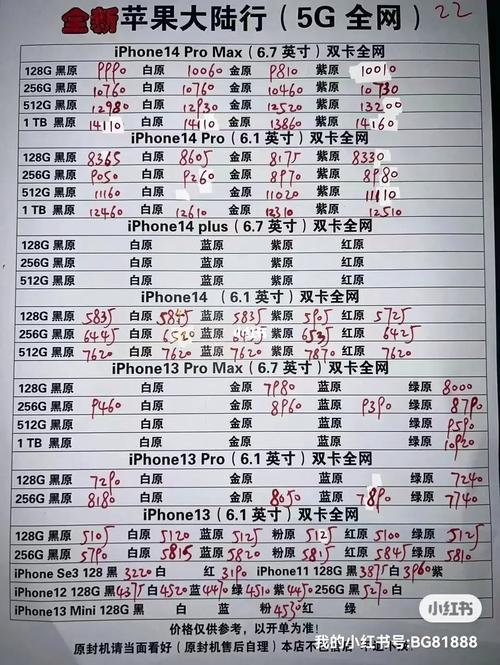 全新苹果大陆行（5G 全网） 22
iPhone14 Pro Max（6.7 英寸）双卡全网
128G 黑原 9990 白原 10060 金原 9810 紫原 10010
256G 黑原 10760 白原 10760 金原 10460 紫原 10730
512G 黑原 12980 白原 12930 金原 12520 紫原 13200
1 TB 黑原 14110 白原 14110 金原 13860 紫原 14160
iPhone14 Pro（6.1 英寸）双卡全网
128G 黑原 8365 白原 8605 金原 8175 紫原 8330
256G 黑原 9050 白原 9260 金原 8970 紫原 8980
512G 黑原 11160 白原 金原 11020 紫原 11110
1 TB 黑原 12460 白原 12610 金原 12310 紫原 12510
iPhone14 plus（6.7 英寸）双卡全网
128G 黑原 白原 蓝原 紫原 红原
256G 黑原 白原 蓝原 紫原 红原
512G 黑原 白原 蓝原 紫原 红原
iPhone14 （6.1 英寸）双卡全网
128G 黑原 5835 白原 5845 蓝原 5835 紫原 5905 红原 5725
256G 黑原 6445 白原 6520 蓝原 紫原 6535 红原 6425
512G 黑原 7620 白原 7620 蓝原 7620 紫原 7870 红原 7620
iPhone13 Pro Max（6.7 英寸）双卡全网
128G 黑原 白原 金原 7980 蓝原 绿原 8000
256G 黑原 9460 白原 金原 8960 蓝原 9390 绿原 8790
512G 黑原 白原 金原 蓝原 绿原 9590
1 TB 黑原 白原 金原 蓝原 绿原 10920
iPhone13 Pro（6.1 英寸）双卡全网
128G 黑原 7290 白原 金原 蓝原 绿原 7240
256G 黑原 8180 白原 金原 8050 蓝原 7890 绿原 7740
iPhone13（6.1 英寸）双卡全网
128G 黑原 5105 白原 5120 蓝原 5120 粉原 5125 红原 5100 绿原 5125
256G 黑原 5790 白原 5815 蓝原 5820 粉原 5815 红原 5845 绿原 5810
iPhone Se3 128 黑 3220 白 红 3190 iPhone11 128G 黑 3875 白 3960 紫
iPhone12 128G 黑 4375 白 4520 蓝 4470 绿 4510 紫 4450 256G 黑 5270 白
iPhone13 Mini 128G 黑 白 蓝 粉 4530 红 绿
价格仅供参考，以开单为准！
原封机请当面看好（原封机售后自理）本店不包售后
小红书
我的小红书号:BG81888